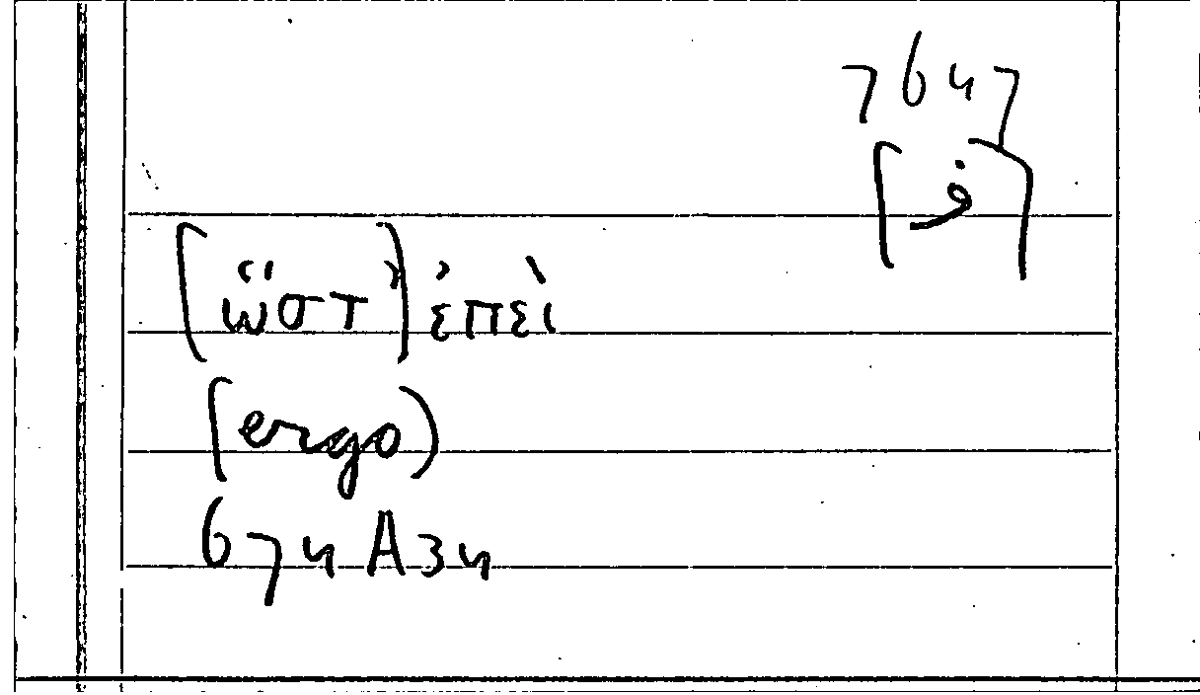 7647
(ف)
(ὥστ’) ἐπεὶ
(ergo)
674A34